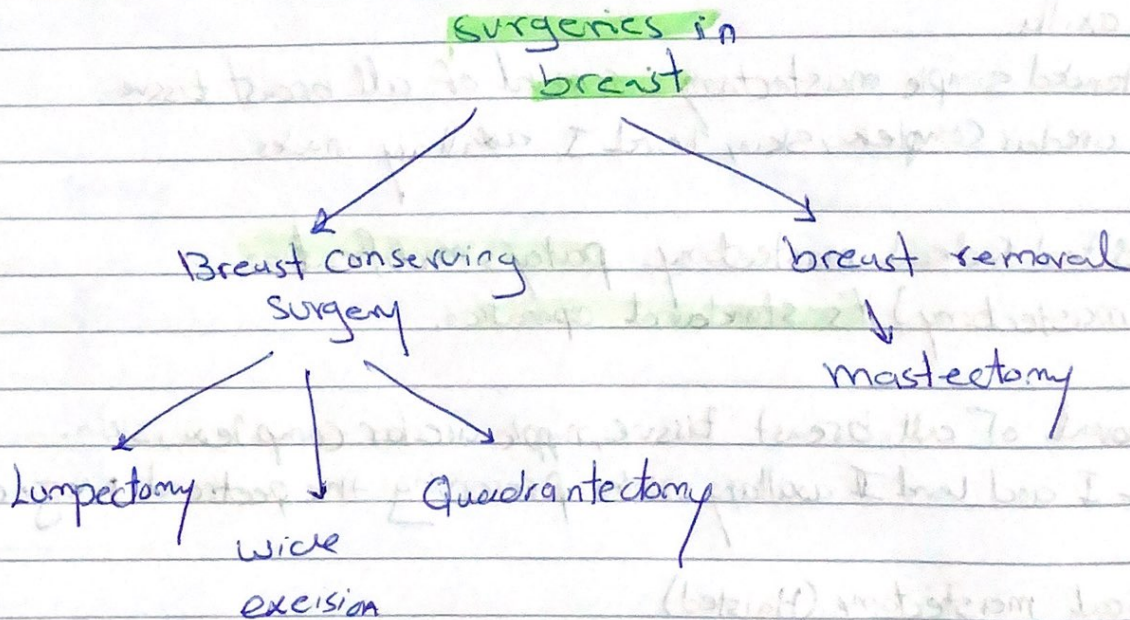 surgeries in
breast
Breast conserving
surgery
breast removal
mastectomy
Lumpectomy
wide
excision
Quadrantectomy